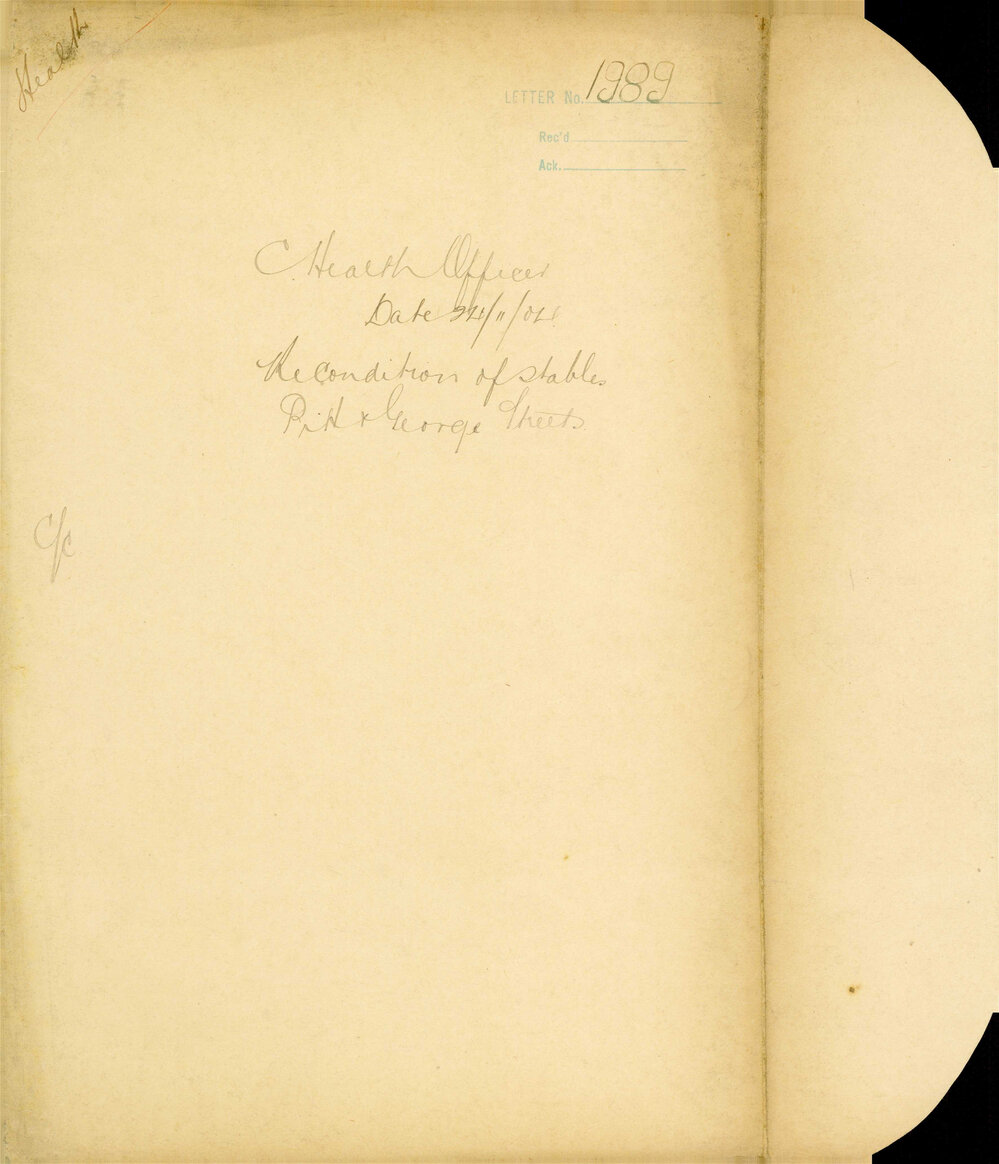 Health
LETTER No. 1989
Rec'd
Ack.
C. Health Officer
Date 24/11/04
Re condition of stables
Pitt & George Streets.
C/c